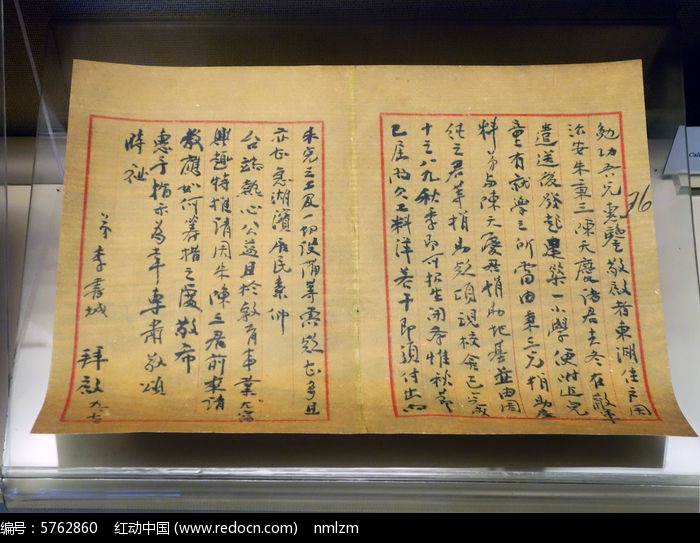 勉功吾兄惠鑒敬啟者東湖住戶周
治安朱東三陳天慶諸君去冬在敝
遣送後發起建築一小學便附近兒
童有就學之所當由東三兄捐助
料弟與陳天慶君捐助地基並由周
純之君等捐助欵項現校舍已完成
十之八九秋季即可招生開學惟秋節
已屆尚欠工料洋若干即須付出
未完之工及一切設備等需欵尚多且
亦甚急湖濱居民素仰
台端熱心公益且於教育事業尤富
興趣特推請周朱陳三君前來請
教應如何籌措之處敬希
惠予指示為幸專肅敬頌
時祉
弟李書城 拜啟 九 七
76
编号：5762860 红动中国 (www.redocn.com) nmlzm